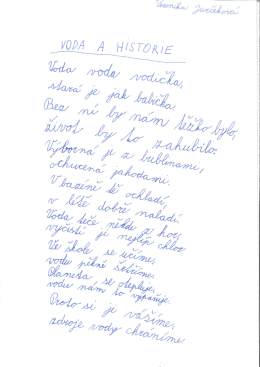 Veronika Jurčeková
VODA A HISTORIE
Voda voda vodička,
stará je jak babička.
Bez ní by nám těžko bylo,
život by to zahubilo.
Výborná je z bublinami,
ochucená jahodami.
V bazéně tě ochladí,
v létě dobře naladí.
Voda teče někde z hor,
vyčistí je nejlíp chlor.
Ve škole se učíme,
vodu pěkně šetříme.
Planeta se otepluje,
vodu nám to vypařuje.
Proto si je vážíme,
zdroje vody chráníme.